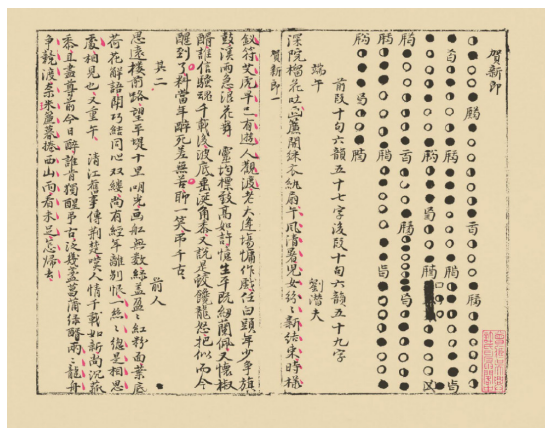 賀新郎
前段十句六韻五十七字後段十句六韻五十九字
端午
劉潛夫
深院榴花吐畫簾開綀衣紈扇午風清暑兒女紛〻新結束時樣
釵符艾虎早已有遊人觀渡老大逢場慵作戲任白頭年少爭旗
鼓溪雨急浪花舞
靈均標致高如許憶生平既紉蘭佩又懷椒
醑誰信騷魂千載後波底垂涎角黍又說是蛟饞龍怒把似而今
醒到了料當年醉死差無苦聊一笑弔千古
其二
前人
思遠樓前路望平堤十里
畫舡無數綠蓋盈〻紅粉面葉底
荷花解語鬭巧結同心雙縷尚有經年離別恨一絲〻總是相思
處相見也又重午
清江舊事傳荊楚嘆人情千載如新尚沉菰
黍且盡尊前今日醉誰肯獨醒弔古泛幾盞菖蒲綠醑兩〻龍舟
爭競渡奈珠簾暮捲西山雨看未足怎歸去